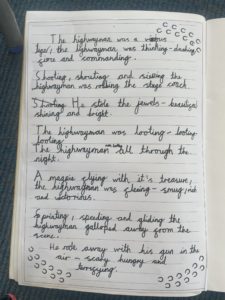 The highwayman was a
tiger; the highwayman was thinking - dashing
fierce and commanding.
Shooting, shouting and seizing the
highwayman was robbing the stage coach.
Shooting He stole the jewels - beautiful
shining and bright.
The highwayman was looting -
The highwayman all through the
night.
A magpie flying with it's treasure,
the highwayman was fleeing - smug, rich
and
Sprinting, speeding and gliding the
highwayman galloped away from the
scene.
He rode away with his gun in the
air - scary hungry and
terrifying.